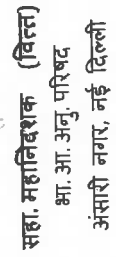 सहा. महानिदेशक (वित्त)
भा. आ. अनु. परिषद
अंसारी नगर, नई दिल्ली